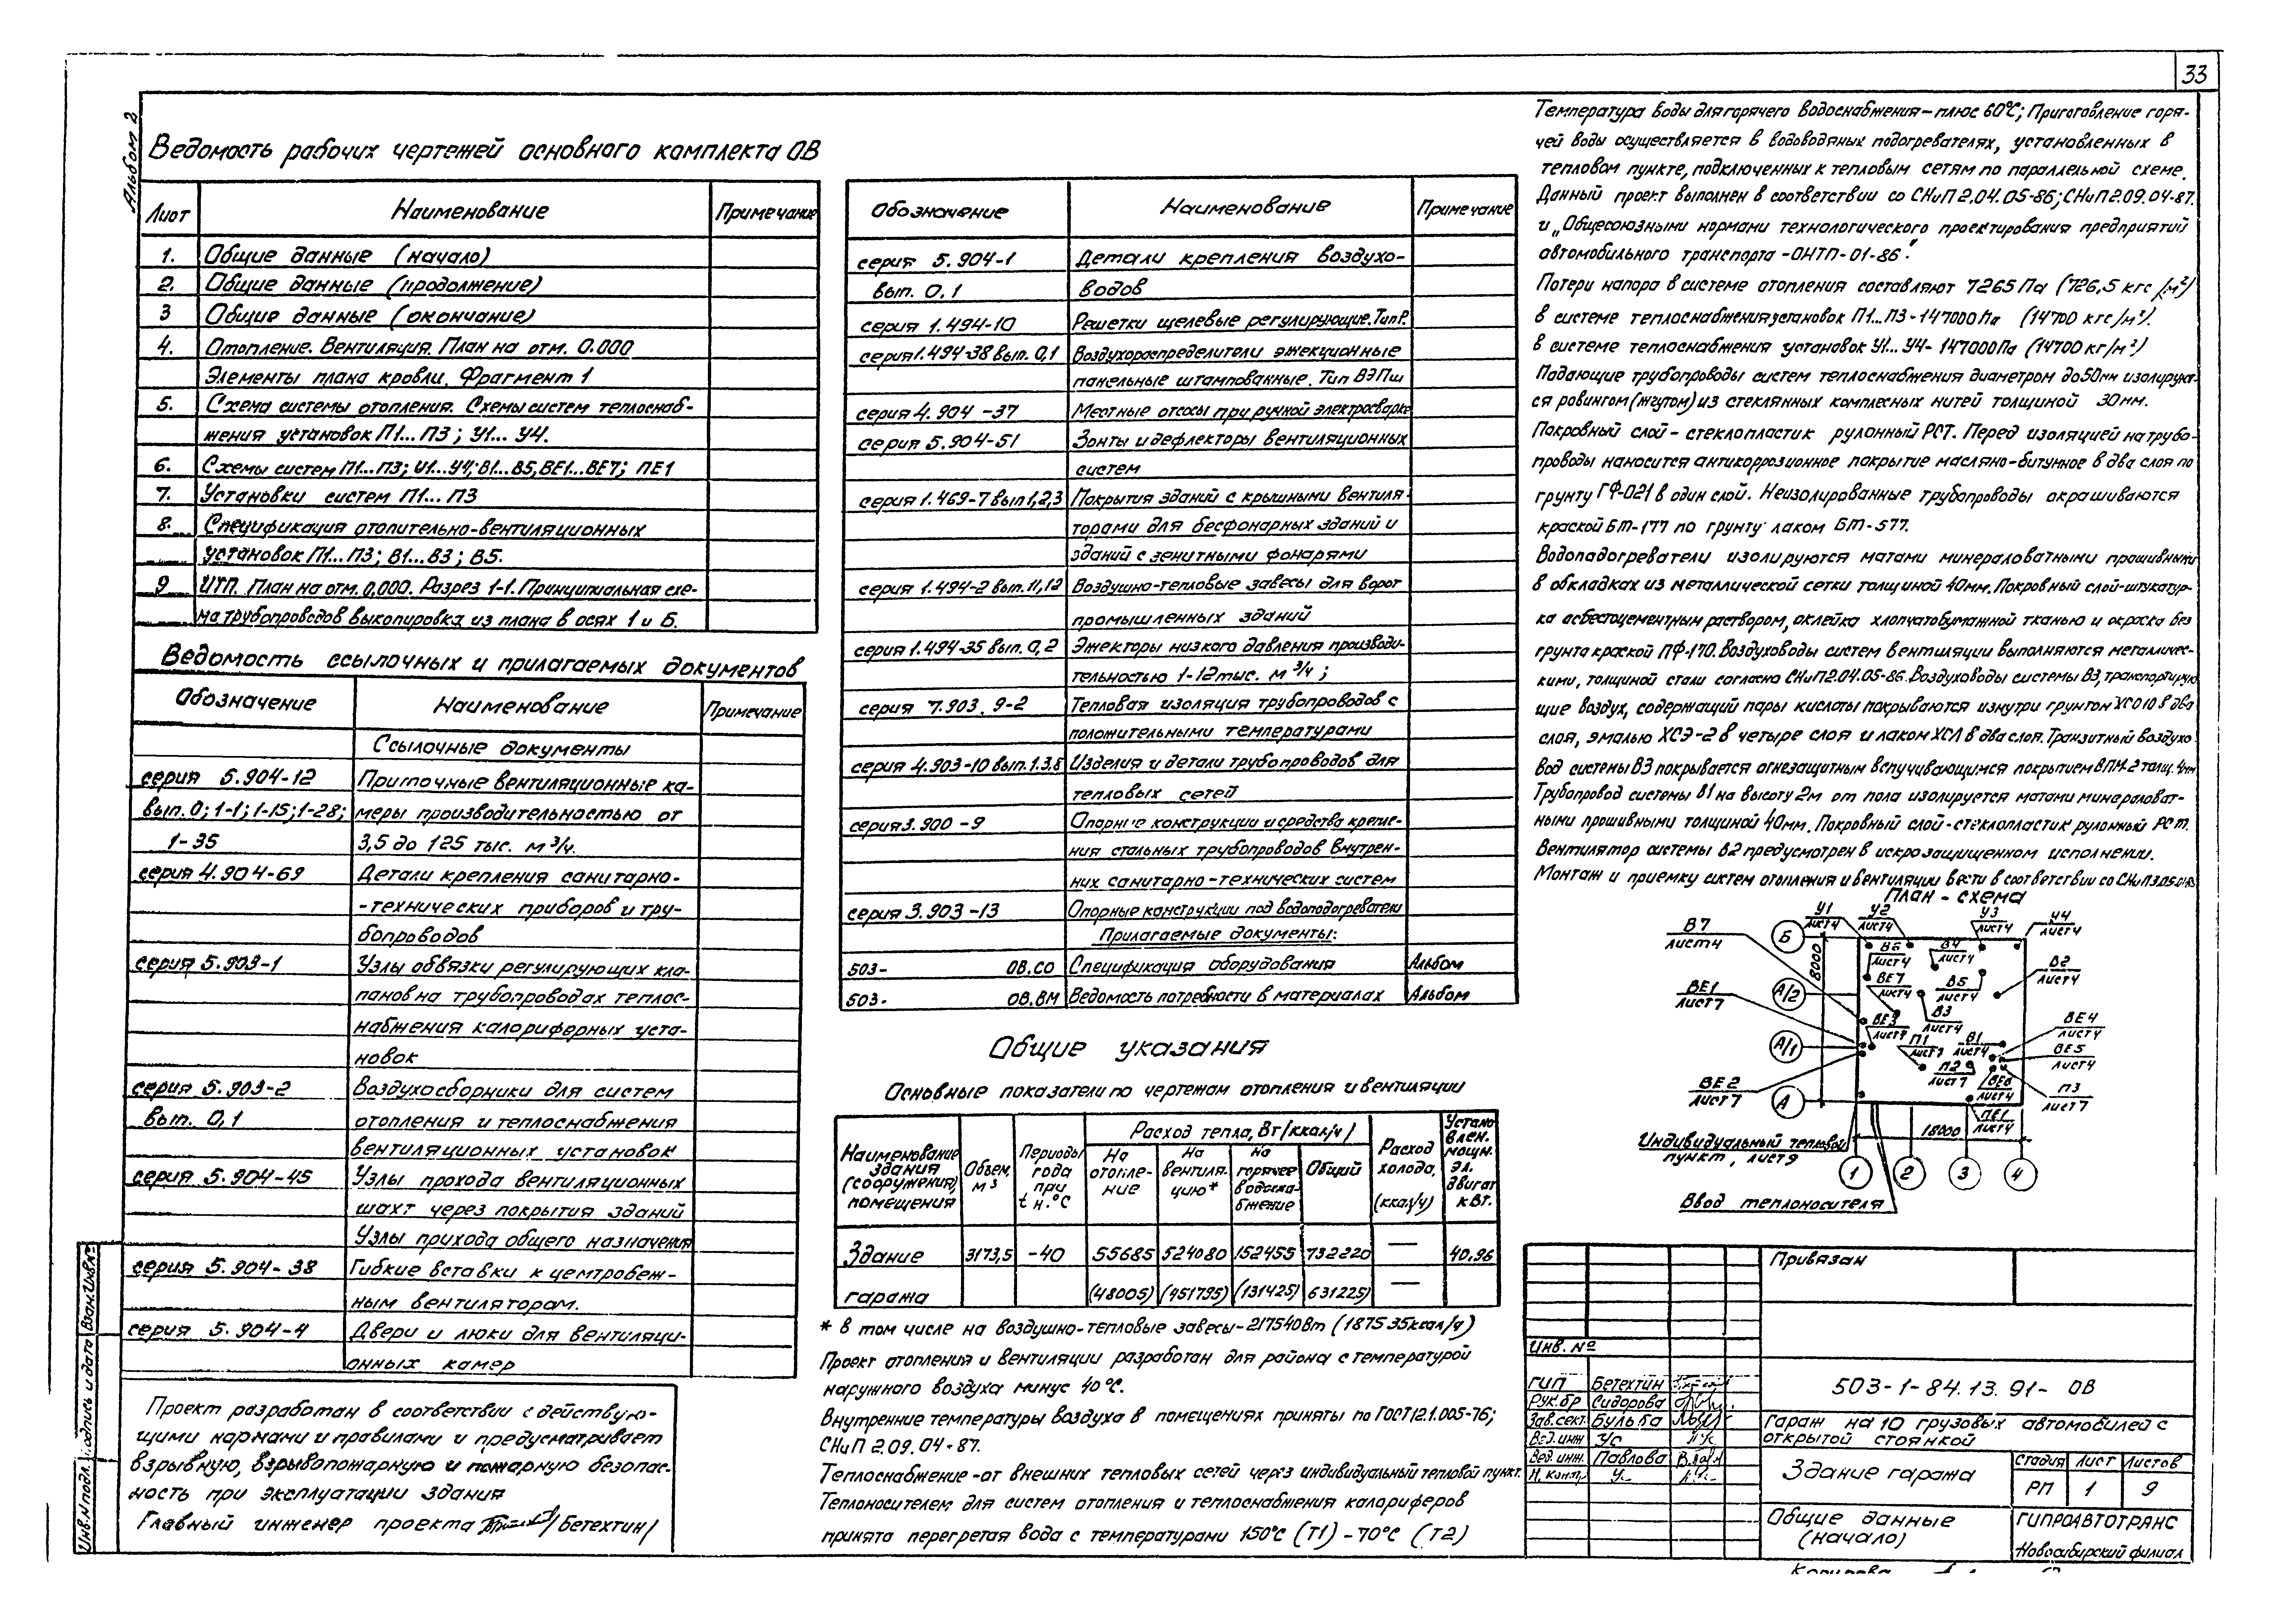 33
Альбом 2
Ведомость рабочих чертежей основного комплекта ОВ
Лист Наименование Примечание
1. Общие данные (начало)
2. Общие данные (продолжение)
3 Общие данные (окончание)
4. Отопление. Вентиляция. План на отм. 0.000
Элементы плана кровли. Фрагмент 1
5. Схема системы отопления. Схемы систем теплоснаб-
жения установок П1...П3; У1... У4.
6. Схемы систем П1...П3; У1...У4; В1...В5, ВЕ1...ВЕ7; ПЕ1
7. Установки систем П1...П3
8. Спецификация отопительно-вентиляционных
установок П1...П3; В1...В3; В5.
9 ИТП. План на отм. 0,000. Разрез 1-1. Принципиальная схе-
ма трубопроводов выкопировка из плана в осях 1 и Б.
Ведомость ссылочных и прилагаемых документов
Обозначение Наименование Примечание
Ссылочные документы
серия 5.904-12 Приточные вентиляционные ка-
вып. 0; 1-1; 1-15; 1-28; меры производительностью от
1-35 3,5 до 125 тыс. м³/ч.
серия 4.904-69 Детали крепления санитарно-
-технических приборов и тру-
бопроводов
серия 5.903-1 Узлы обвязки регулирующих кла-
панов на трубопроводах теплос-
набжения калориферных уста-
новок
серия 5.903-2 Воздухосборники для систем
вып. 0,1 отопления и теплоснабжения
вентиляционных установок
серия 5.904-45 Узлы прохода вентиляционных
шахт через покрытия зданий
Узлы прихода общего назначения
серия 5.904-38 Гибкие вставки к центробеж-
ным вентиляторам.
серия 5.904-4 Двери и люки для вентиляци-
онных камер
Проект разработан в соответствии с действую-
щими нормами и правилами и предусматривает
взрывную, взрывопожарную и пожарную безопас-
ность при эксплуатации здания
Главный инженер проекта /Бетехтин/
Инв.№ подл. Подпись и дата Взам.Инв.№
Обозначение Наименование Примечание
серия 5.904-1 Детали крепления воздухо-
вып. 0,1 водов
серия 1.494-10 Решетки щелевые регулирующие. Тип Р.
серия 1.494-38 вып. 0,1 Воздухораспределители эжекционные
панельные штампованные. Тип ВЭПш
серия 4.904-37 Местные отсосы при ручной электросварке
серия 5.904-51 Зонты и дефлекторы вентиляционных
систем
серия 1.469-7 вып 1,2,3 Покрытия зданий с крышными вентиля-
торами для бесфонарных зданий и
зданий с зенитными фонарями
серия 1.494-2 вып. 11,12 Воздушно-тепловые завесы для ворот
промышленных зданий
серия 1.494-35 вып. 0,2 Эжекторы низкого давления производи-
тельностью 1-12 тыс. м³/ч;
серия 7.903. 9-2 Тепловая изоляция трубопроводов с
положительными температурами
серия 4.903-10 вып. 1.3.8 Изделия и детали трубопроводов для
тепловых сетей
серия 3.900-9 Опорные конструкции и средства крепле-
ния стальных трубопроводов внутрен-
них санитарно-технических систем
серия 3.903-13 Опорные конструкции под водоподогреватели
Прилагаемые документы:
503- ОВ.СО Спецификация оборудования Альбом
503- ОВ.ВМ Ведомость потребности в материалах Альбом
Общие указания
Основные показатели по чертежам отопления и вентиляции
Наименование здания (сооружения), помещения Объем, м³ Периоды года при tн.°С Расход тепла, Вт/(ккал/ч) На отопле-ние На вентиля-цию* На горячее водосна-бжение Общий Расход холода, (ккал/ч) Устано влен. мощн. эл. двигат кВт.
Здание 3173,5 -40 55685 524080 152455 732220 — 40.96
гаража (48005) (451795) (131425) 631225) —
* в том числе на воздушно-тепловые завесы-217540Вт (187535ккал/ч)
Проект отопления и вентиляции разработан для района с температурой
наружного воздуха минус 40°С.
Внутренние температуры воздуха в помещениях приняты по ГОСТ 12.1.005-76;
СНиП 2.09.04-87.
Теплоснабжение-от внешних тепловых сетей через индивидуальный тепловой пункт.
Теплоносителем для систем отопления и теплоснабжения калориферов
принята перегретая вода с температурами 150°С (Т1) - 70°С (Т2)
Температура воды для горячего водоснабжения-плюс 60°С; Приготовление горя-
чей воды осуществляется в водоводяных подогревателях, установленных в
тепловом пункте, подключенных к тепловым сетям по параллельной схеме.
Данный проект выполнен в соответствии со СНиП 2.04.05-86; СНиП 2.09.04-87.
и „Общесоюзными нормами технологического проектирования предприятий
автомобильного транспорта-ОНТП-01-86".
Потери напора в системе отопления составляют 7265 Па (726,5 кгс/м²)
в системе теплоснабжения установок П1...П3-147000Па (14700 кгс/м²).
в системе теплоснабжения установок У1... У4-147000Па (14700 кг/м²)
Падающие трубопроводы систем теплоснабжения диаметром до 50мм изолируют-
ся ровингом (жгутом) из стеклянных комплексных нитей толщиной 30мм.
Покровный слой-стеклопластик рулонный РСТ. Перед изоляцией на трубо-
проводы наносится антикоррозионное покрытие масляно-битумное в два слоя по
грунту ГФ-021 в один слой. Неизолированные трубопроводы окрашиваются
краской БТ-177 по грунту лаком БТ-577.
Водоподогреватели изолируются матами минераловатными прошивными
в обкладках из металлической сетки толщиной 40мм. Покровный слой-штукатур-
ка асбестоцементным раствором, оклейка хлопчатобумажной тканью и окраска без
грунта краской ПФ-170. Воздуховоды систем вентиляции выполняются металличес-
кими, толщиной стали согласно СНиП 2.04.05-86. Воздуховоды системы В3, транспортирую
щие воздух, содержащий пары кислоты покрываются изнутри грунтом ХС010 в два
слоя, эмалью ХСЭ-2 в четыре слоя и лаком ХСЛ в два слоя. Транзитный воздухо
вод системы В3 покрывается огнезащитным вспучивающимся покрытием ВПМ-2 толщ. 4мм
Трубопровод системы В1 на высоту 2м от пола изолируется матами минераловат-
ными прошивными толщиной 40мм. Покровный слой-стеклопластик рулонный РСТ.
Вентилятор системы В2 предусмотрен в искрозащищенном исполнении.
Монтаж и приемку систем отопления и вентиляции вести в соответствии со СНиП 3.05.01-85
План-схема
У1 лист4 У2 лист4 У3 лист4 У4 лист4
В7 лист4 Б В6 лист4 В4 лист4 В2 лист4
8000 ВЕ7 лист4 В5 лист4
ВЕ1 лист7 А/2 В3 лист4
ВЕ3 П1 В1 лист4 ВЕ4 лист4
А/1 ВЕ5 лист4
ВЕ2 лист7 П2 лист7 ВЕ6 лист4 П3 лист7
А ПЕ1 лист4
18000
Индивидуальный тепловой
пункт, лист9
1 2 3 4
Ввод теплоносителя
Привязан
Инв. №
503-1-84.13.91- ОВ
ГИП Бетехтин
Рук.бр Сидорова
Зав.сект. Бульба
Вед.инж Ус
Вед.инж. Павлова
Н.контр. Ус
Гараж на 10 грузовых автомобилей с
открытой стоянкой
Здание гаража
Стадия Лист Листов
РП 1 9
Общие данные
(начало)
ГИПРОАВТОТРАНС
Новосибирский филиал